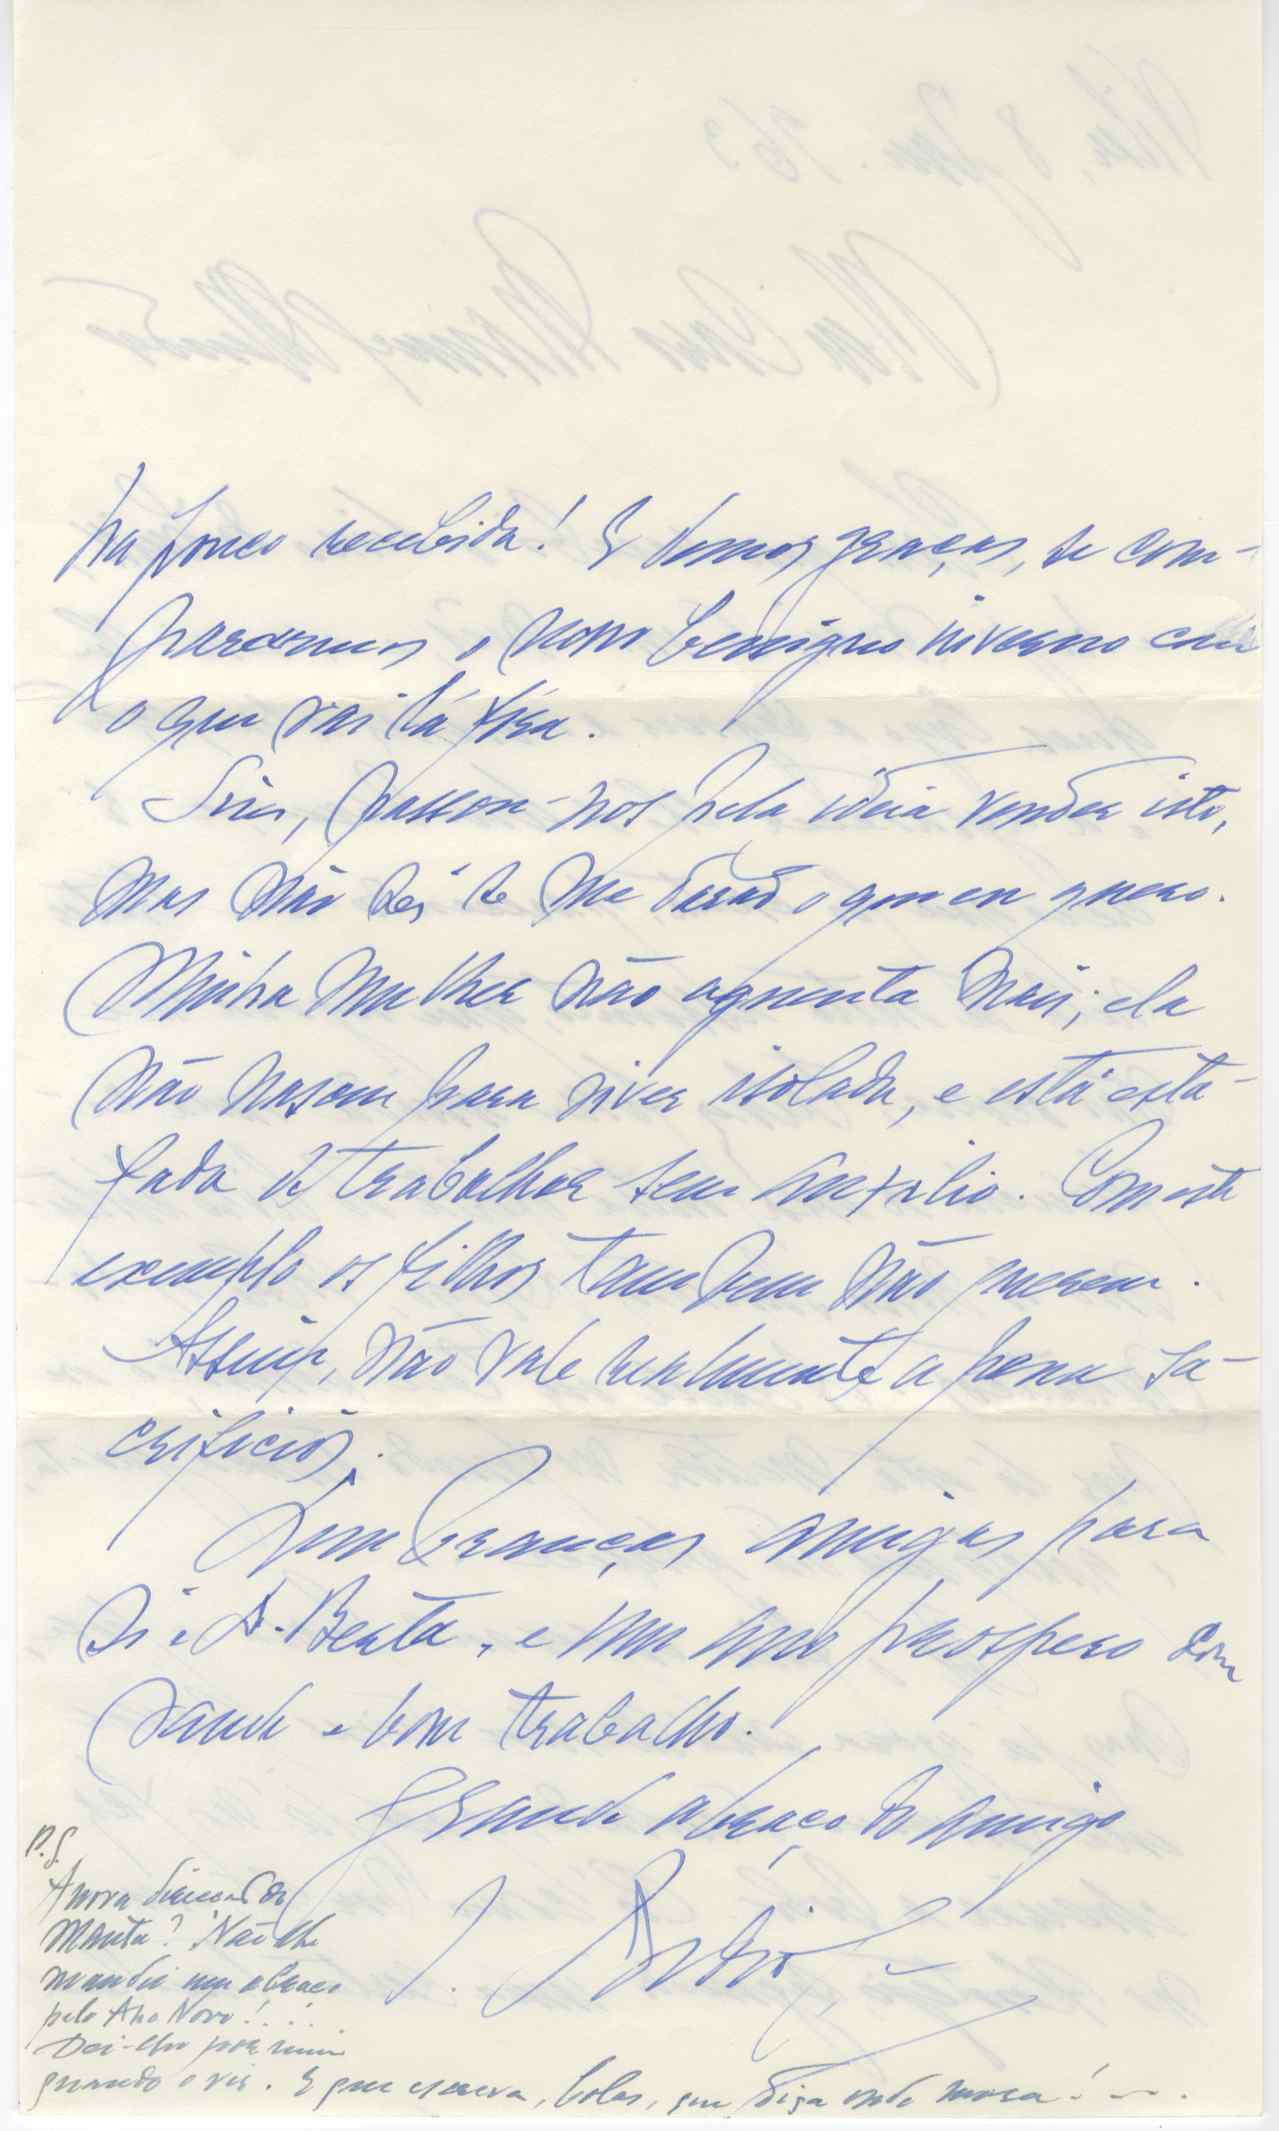 ha pouco recebida! E demos graças, se com-
pararmos o nosso benigno inverno com
o que vai lá fóra.
Sim, passou-nos pela idéia vender isto,
mas não sei se me darão o que eu quero.
Minha mulher não aguenta mais; ela
não nasceu para viver isolada, e está esta-
fada de trabalhar sem auxilio. Com este
exemplo os filhos tambem não querem.
Assim, não vale realmente a pena sa-
crificios.
Lembranças amigas para
Si e D. Berta, e um ano prospero com
saude e bom trabalho.
Grande abraço do amigo
P.S.
A nova direcção do
Manta? Não lhe
mandei um abraço
pelo Ano Novo!...
Dei-lho por mim
quando o vir. E que escreva, bolas, que diga onde mora!...